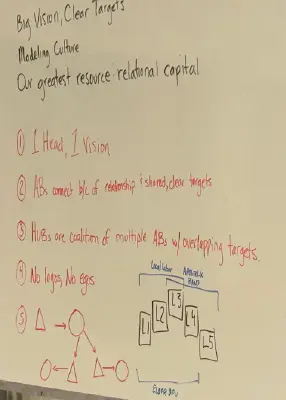 Big Vision, Clear Targets
Modeling Culture
Our greatest resource: relational capital
① 1 Head, 1 Vision
② ABs connect b/c of relationship & shared, clear targets
③ HUBs are coalition of multiple ABs w/ overlapping targets.
④ No logos, No egos
Local
⑤
L1 L2 L3 L4 L5